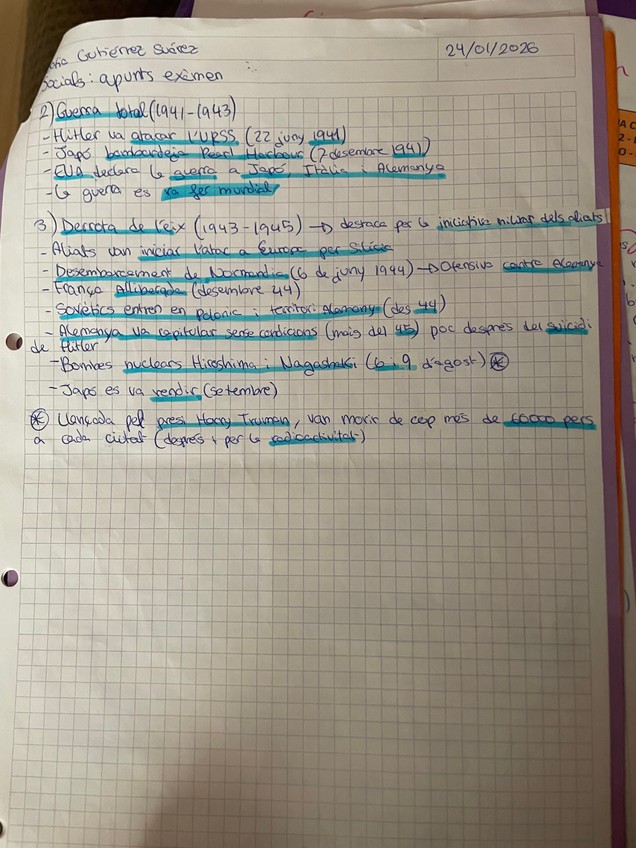 Gutiérrez Suárez
24/01/2026
Socials: apunts exàmen
2) Guerra total (1941-1943)
- Hitler va atacar l'URSS (22 juny 1941)
- Japó bombardeja Pearl Harbour (7 desembre 1941)
- EUA declara la guerra a Japó Itàlia Alemanya
- La guerra es va fer mundial
3) Derrota de l'eix (1943-1945) → destaca per la iniciativa militar dels aliats
- Aliats van iniciar l'atac a Europa per Sicília
- Desembarcament de Normandia (6 de juny 1944) → Ofensiva contra Alemanya
- França alliberada (desembre 44)
- Soviètics entren en Polònia i territori alemany (des 44)
- Alemanya va capitular sense condicions (maig del 45) poc després del suicidi
de Hitler
- Bombes nuclears Hiroshima i Nagashaki (6 i 9 d'agost) *
- Japó es va rendir (setembre)
* Llançada pel pres Harry Truman, van morir de cop més de 60000 pers
a cada ciutat (després + per la radioactivitat)